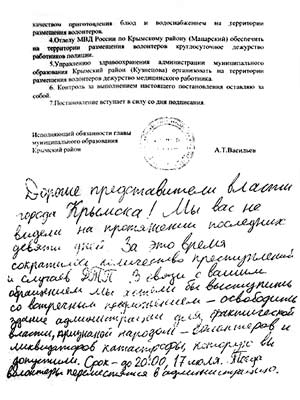 качеством приготовления блюд и водоснабжением на территории
размещения волонтеров.
4.Отделу МВД России по Крымскому району (Мацарский) обеспечить
на территории размещения волонтеров круглосуточное дежурство
работников полиции.
5.Управлению здравоохранения администрации муниципального
образования Крымский район (Кузнецова) организовать на территории
размещения волонтеров дежурство медицинского работника.
6. Контроль за выполнением настоящего постановления оставляю за
собой.
7.Постановление вступает в силу со дня подписания.
Исполняющий обязанности главы
муниципального образования
Крымский район
А.Т.Васильев
Дорогие представители власти
города Крымска! Мы вас не
видели на протяжении последних
девяти дней За это время
сократилось количество преступлений
и случаев ДТП. В связи с вашим
обращением мы хотели бы выступить
со встречным предложением - освободить
здание администрации для фактической
власти, признанной народом - волонтеров и
ликвидаторов катастрофы, которую вы
допустили. Срок - до 20:00, 17 июля. Тогда
волонтеры переместятся в администрацию.